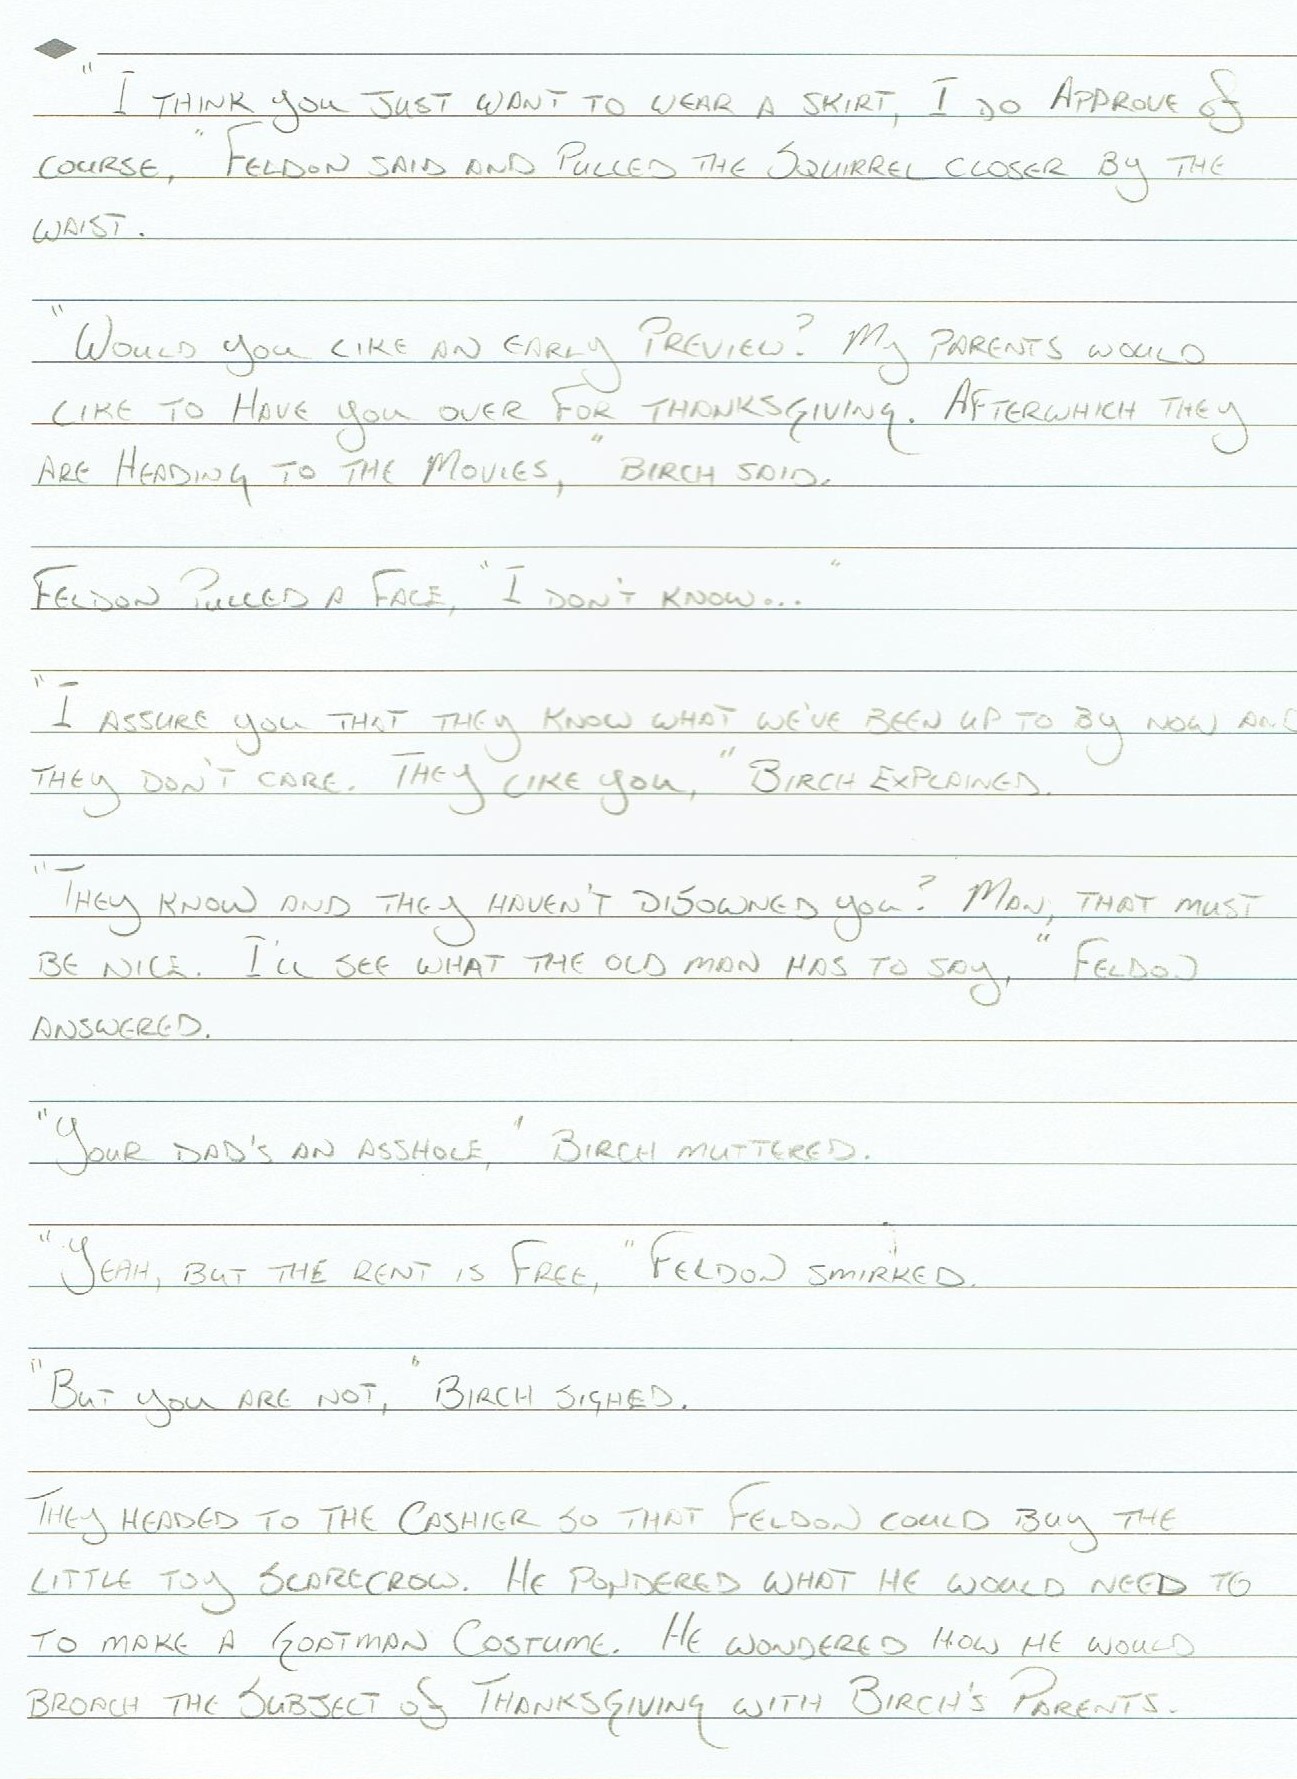 "I THINK you JUST WANT TO WEAR A SKIRT, I DO APPROVE of
COURSE," FELDON SAID AND PULLED THE SQUIRREL CLOSER BY THE
WAIST.
"WOULD you LIKE AN EARLY PREVIEW? My PARENTS WOULD
LIKE TO HAVE you OVER FOR THANKSGIVING. AFTERWHICH THEY
ARE HEADING TO THE MOVIES," BIRCH SAID.
FELDON PULLED A FACE, "I DON'T KNOW..."
"I ASSURE you THAT THEY KNOW WHAT WE'VE BEEN UP TO BY NOW AND
THEY DON'T CARE. THEY LIKE you," BIRCH EXPLAINED.
"THEY KNOW AND THEY HAVEN'T DISOWNED you? MAN, THAT MUST
BE NICE. I'LL SEE WHAT THE OLD MAN HAS TO SAY," FELDON
ANSWERED.
"YOUR DAD'S AN ASSHOLE," BIRCH MUTTERED.
"YEAH, BUT THE RENT IS FREE," FELDON SMIRKED.
"BUT you ARE NOT," BIRCH SIGHED.
THEY HEADED TO THE CASHIER SO THAT FELDON COULD BUY THE
LITTLE TOY SCARECROW. HE PONDERED WHAT HE WOULD NEED TO
TO MAKE A GOATMAN COSTUME. HE WONDERED HOW HE WOULD
BROACH THE SUBJECT of THANKSGIVING WITH BIRCH'S PARENTS.